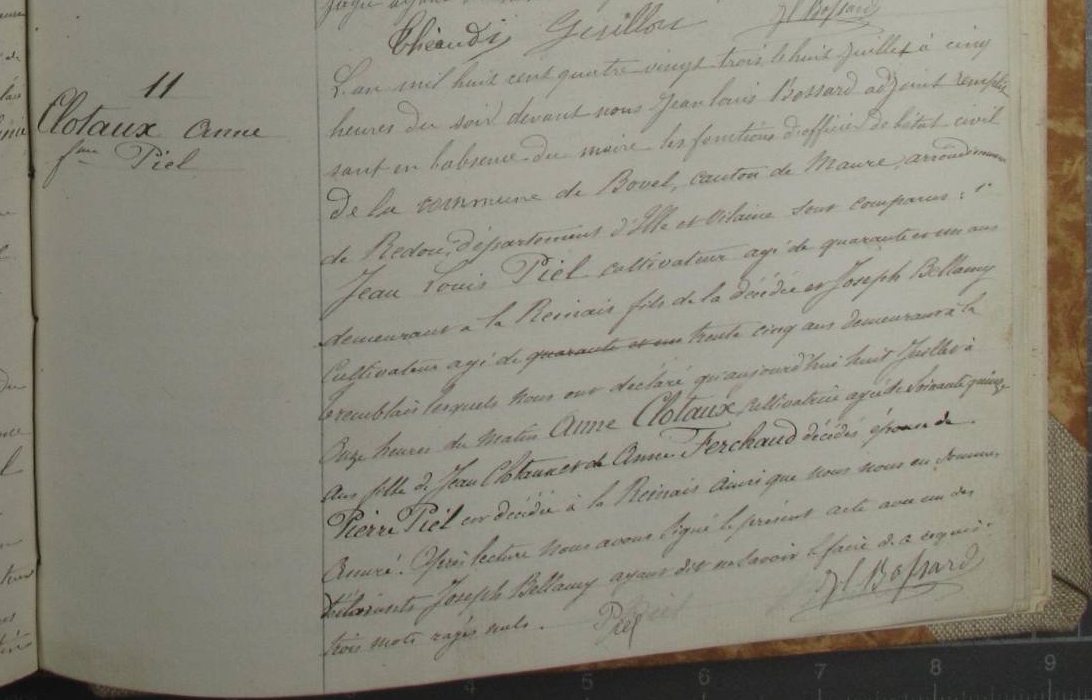 Théaudi Guillou Jl Bossard
11
Clotaux Anne
fme Piel
L'an mil huit cent quatre vingt trois le huit Juillet à cinq
heures du soir devant nous Jean louis Bossard adjoint remplis
sant en l'absence du maire les fonctions d'officier de l'état civil
de la commune de Bovel, canton de Maure, arrondissement
de Redon, département d'Ille et Vilaine sont comparus : 1°
Jean Louis Piel cultivateur agé de quarante et un ans
demeurant à la Reinais fils de la décédée et Joseph Bellamy
Cultivateur agé de quarante et un trente cinq ans demeurant à la
lesquels nous ont déclaré qu'aujourd'hui huit Juillet à
Onze heures du matin Anne Clotaux, cultivatrice agée de Soixante quinze
ans fille de Jean Clotaux et de Anne Ferchaud décédés épouse de
Pierre Piel est décédée à la Reinais ainsi que nous nous en sommes
assuré. Après lecture nous avons signé le présent acte avec un des
déclarants Joseph Bellamy ayant dit ne savoir le faire de ce requis.
trois mots rayés nuls. Piel Jl Bossard